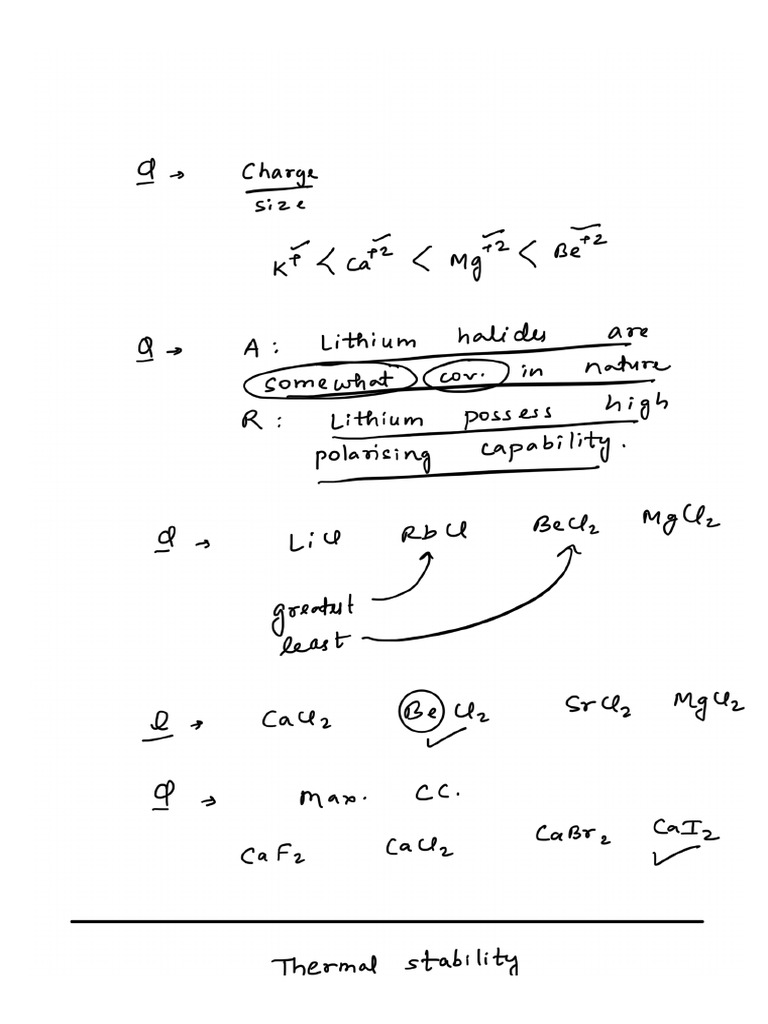 Q → Charge
size
K⁺ < Ca⁺² < Mg⁺² < Be⁺²
Q → A : Lithium halides are
somewhat cov. in nature
R : Lithium possess high
polarising capability.
Q → LiCl RbCl BeCl₂ MgCl₂
greatest
least
Q → CaCl₂ BeCl₂ SrCl₂ MgCl₂
Q → Max. CC.
CaF₂ CaCl₂ CaBr₂ CaI₂
Thermal stability